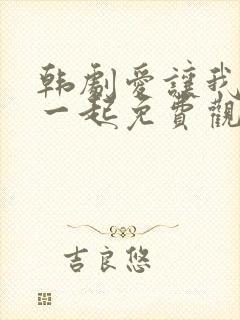 韩劇愛讓我
一起免費觀
吉良悠